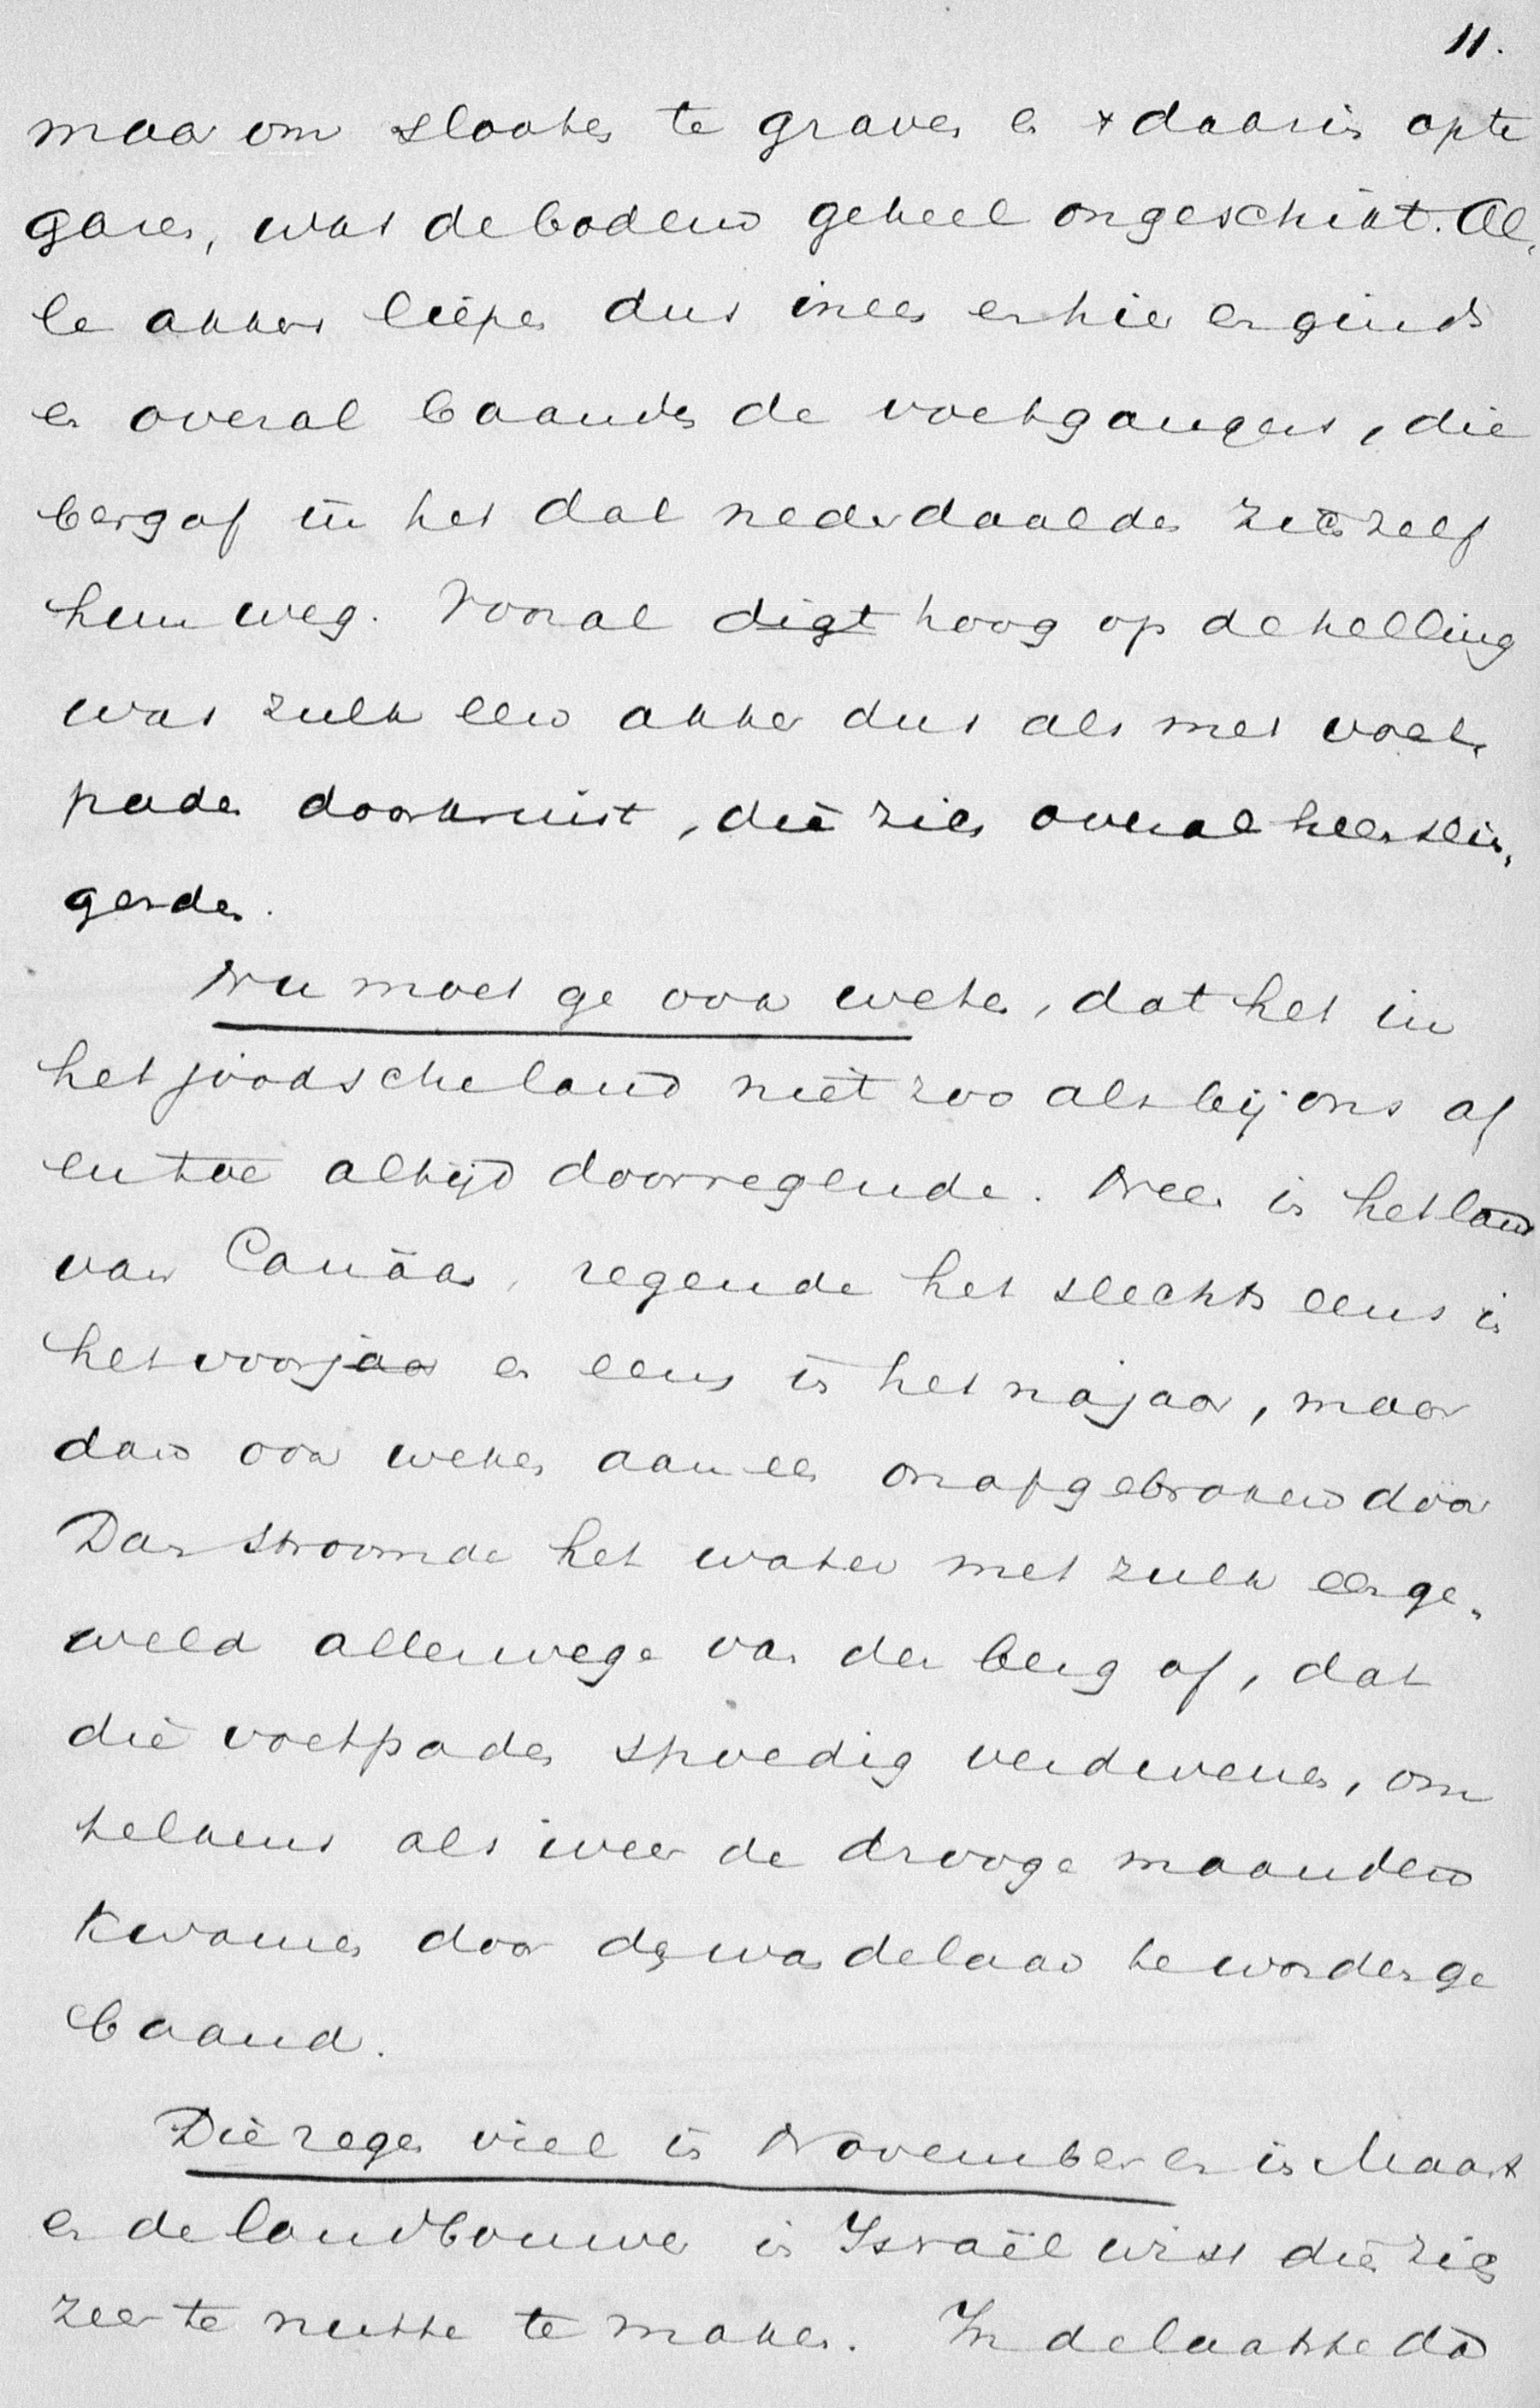 11.
maar om slooten te graven en daarin op te
garen, was de bodem geheel ongeschikt. Al„
le akkers liepen dus ineen en hier en ginds
en overal baanden de voetgangers, die
bergaf in het dal nederdaalden zich zelf
hun weg. Vooral digt hoog op de helling
was zulk een akker dus als met voet„
paden doorkruist, die zich overal heen slin„
gerden.
Nu moet ge ook weten, dat het in
het joodsche land niet zoo als bij ons af
en toe altijd doorregende. Neen in het land
van Canaän, regende het slechts eens in
het voorjaar en eens in het najaar, maar
dan ook weken aaneen onafgebroken door
Dan stroomde het water met zulk een ge„
weld allerwege van den berg af, dat
die voetpaden spoedig verdwenen, om
telkens als weer de drooge maanden
kwamen door de wandelaar te worden ge
baand.
Die regen viel in November en in Maart
en de landbouwer in Israël wist die zich
zeer te nutte te maken. In de laatste da